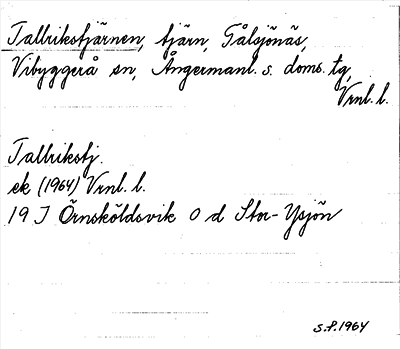 Tallrikstjärnen, tjärn, Gålsjönäs,
Vibyggerå sn, Ångermanl. s. doms. tg,
Vrnl. l.
Tallrikstj.
ek (1964) Vrnl. l.
19 I Örnsköldsvik O d Stor-Ysjön
S.P. 1964